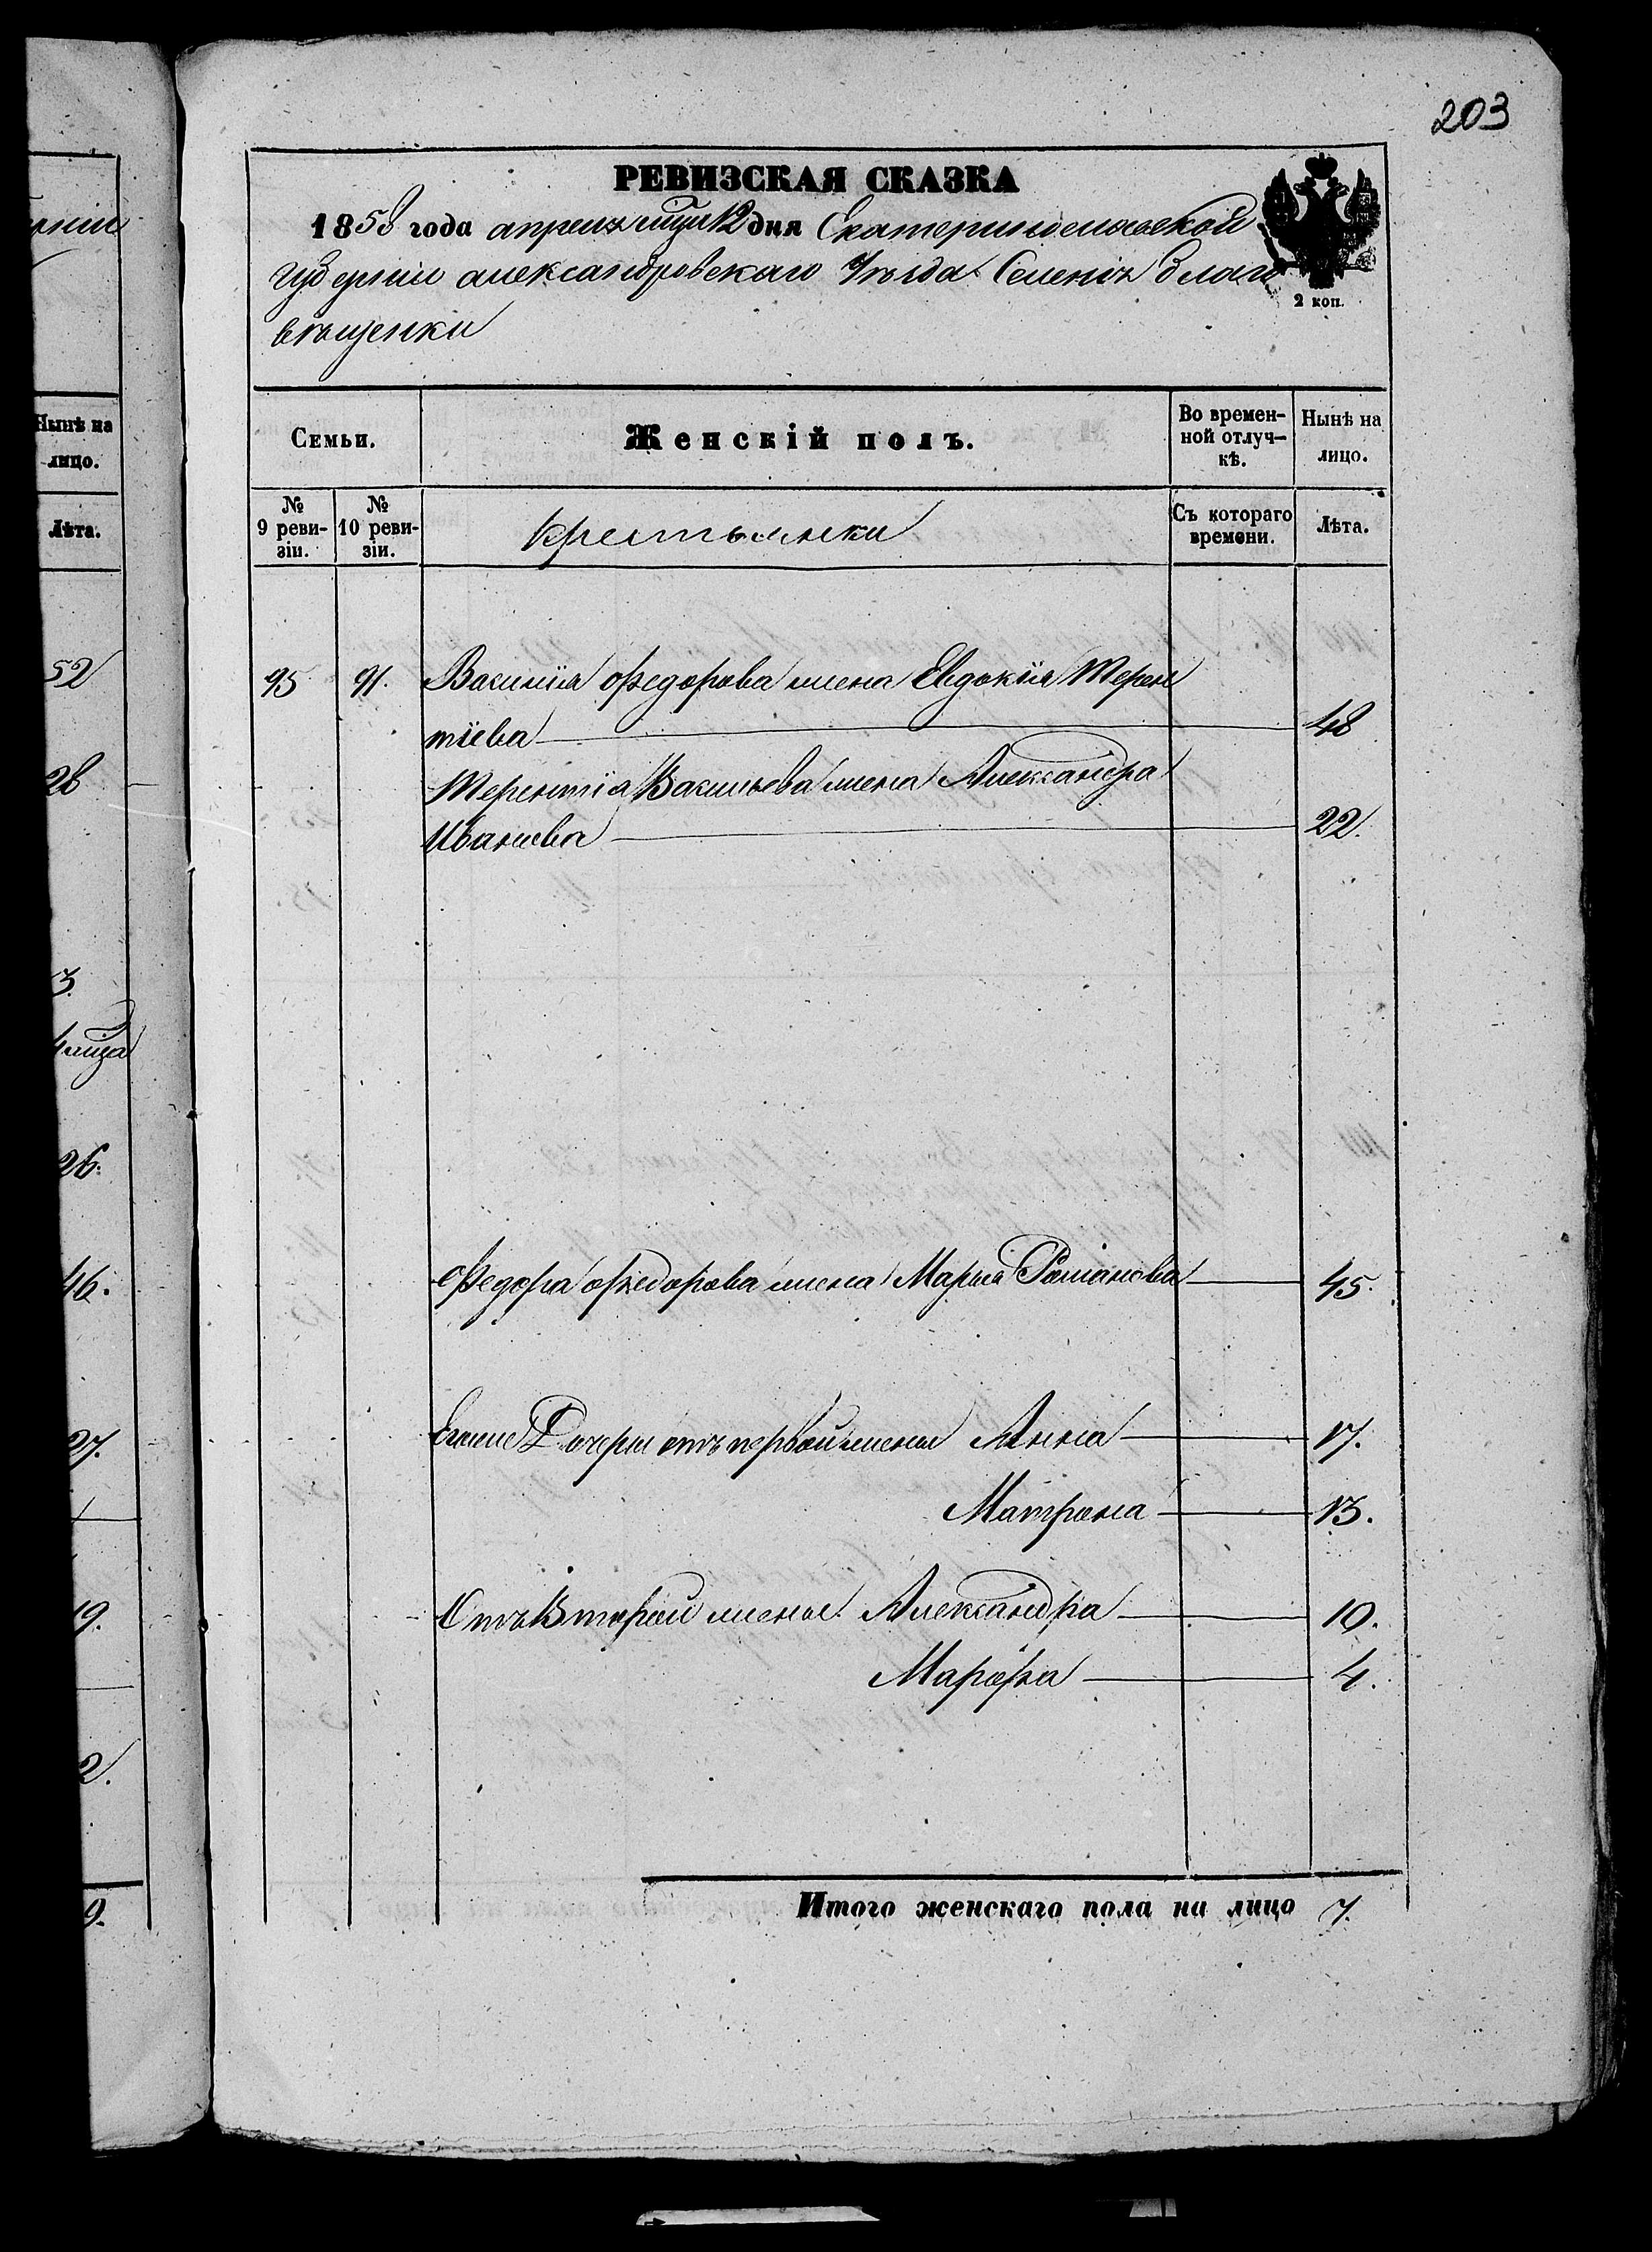 203
РЕВИЗСКАЯ СКАЗКА
1858 года апреля мца 12 дня Екатеринославской
губернии александровскаго Уѣзда Селенія благо
вѣщенки
2 коп.
Семьи.
Женскій полъ.
Во времен-
ной отлуч-
кѣ.
Нынѣ на
лицо.
№
9 реви-
зіи.
№
10 реви-
зіи.
крестьянки
Съ котораго
времени.
Лѣта.
95 91. Василія Федорова жена Евдокія Терен
тіева 48
Терентіа Васильева жена Александра
Иванова 22.
Федора Федорова жена Марья Романова 45.
Егоже Дочери отъ первой жены Анна 17.
Матрона 13.
Отъ Второй жены Александра 10.
Марфа 4.
Итого женскаго пола на лицо 7.
Нынѣ на
лицо.
Лѣта.
52
28
3.
26.
46.
27.
19.
2.
9.